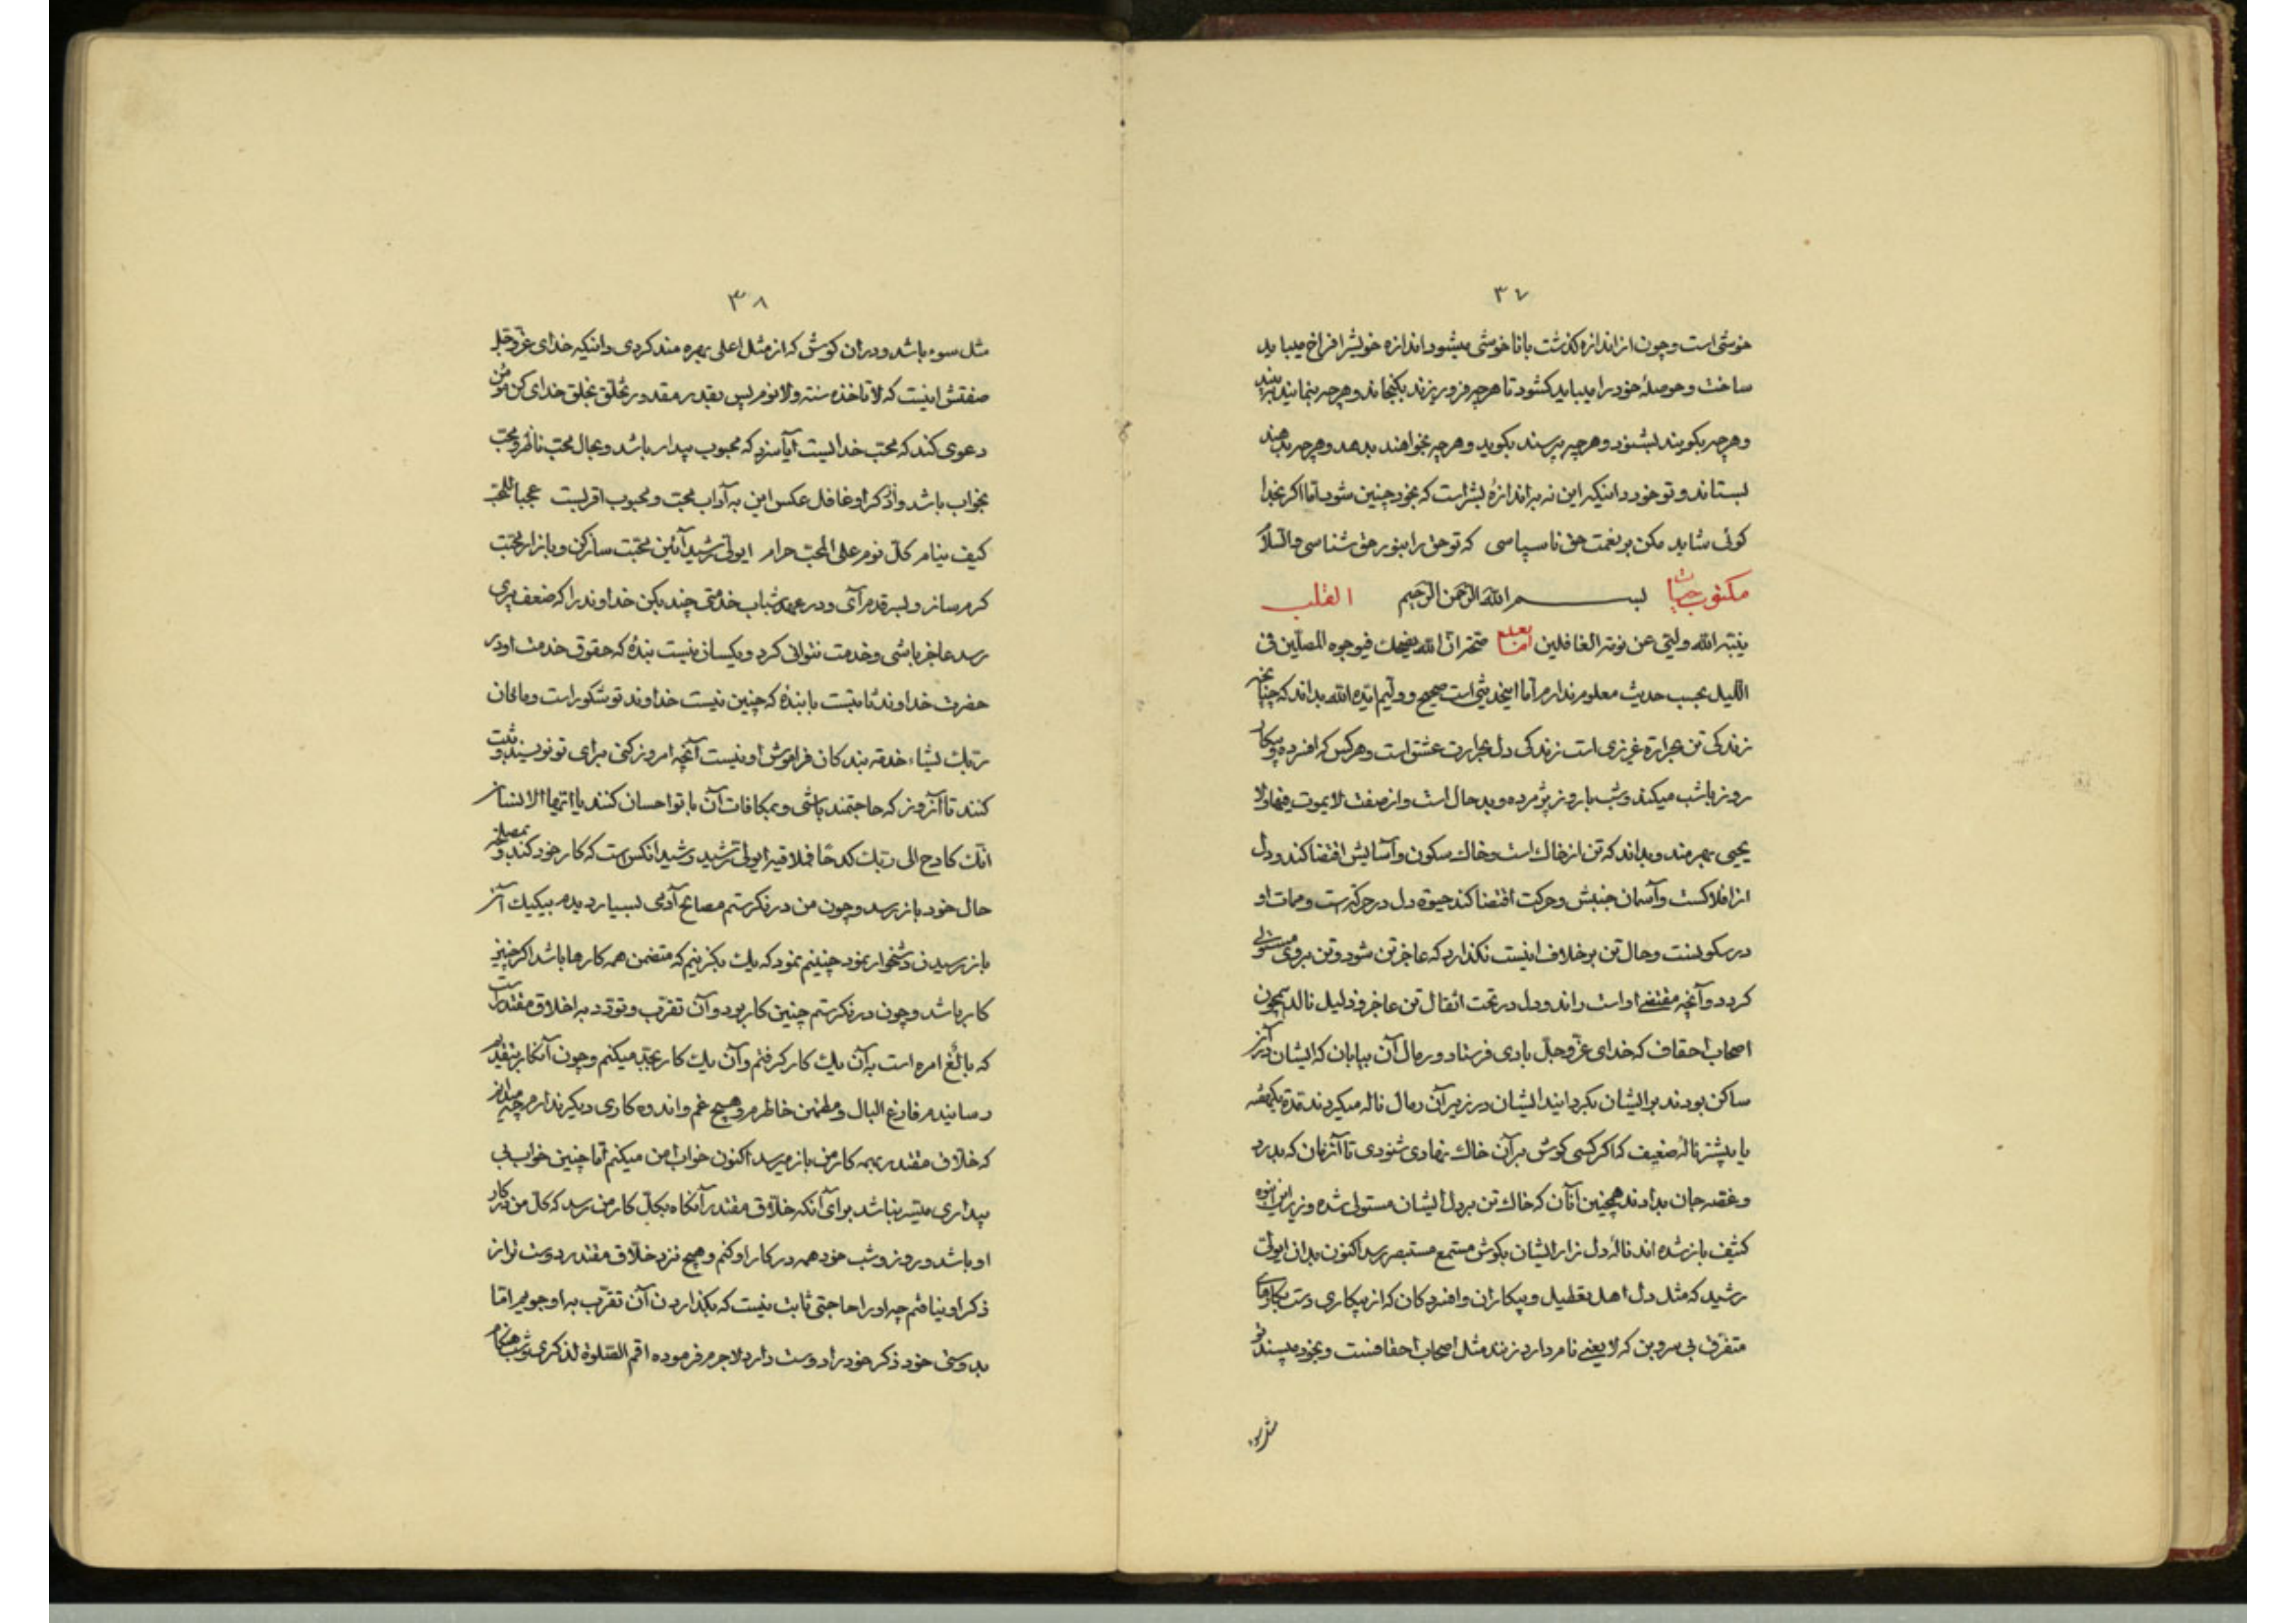 ۳۷
خوشی است و چون از اندازه گذشت با ناخوشی میشود اندازه خویش را فراخ میباید
ساخت و حوصلهٔ خود را میباید کشود تا هر چه فرو ریزند بکنجاند و هر چه بنمایند ببیند
و هر چه بکویند بشنود و هر چه پرسند بکوید و هر چه بخواهند بدهد و هر چه بدهند
بستاند و تو خود دانیکه این نه به اندازهٔ بشر است که بخود چنین شود اما اکر بخدا
کوئی شاید مکن بر نعمت حق ناسپاسی که تو حق را بنور حق شناسی والسلام
مکتوب حیات القلب بسم الله الرحمن الرحیم
ینبه الله ولیی عن نومة الغافلین امابعد صح ان الله یضحک فی وجوه المصلین فی
اللیل بحسب حدیث معلوم ندارم اما اینحدیثی است صحیح و ولیم ایده الله بداند که چنانچه
زندکی تن بحرارة غریزی است زندکی دل بحرارت عشق است و هر کس که افسرده و بیکار
روز با شب میکند و شب با روز پژمرده و بد حال است و از صفت لا یموت فیها ولا
یحیی بهرمند و بداند که تن از خاک است و خاک سکون و آسایش اقتضا کند و دل
از افلاکست و آسمان جنبش و حرکت اقتضا کند حیوة دل در حرکتست و ممات او
در سکونست و حال تن بر خلاف اینست نکذارد که عاجز تن شود و تن بر وی مستولی
کردد و آنچه مقتضی او است راند و دل در تحت اثقال تن عاجز و ذلیل نالد همچون
اصحاب احقاف که خدای عز و جل بادی فرستاد و رمال آن بیابان که ایشان در آن
ساکن بودند بر ایشان بکردانید ایشان در زیر آن رمال ناله میکردند مدة یکهفته
یا بیشتر نالهٔ ضعیف که اکر کسی کوش بر آن خاک نهادی شنودی تا آنزمان که بدرد
و غصه جان بدادند همچنین آنان که خاک تن بر دل ایشان مستولی شده و زیر این انبوه
کثیف باز شده اند نالهٔ دل زار ایشان بکوش مستمع مستبصر رسد اکنون بدان ایولی
رشید که مثل دل اهل تعطیل و بیکاران و افسردکان که از بیکاری دست بکارهای
متفرق بی سر و بن که لا یعنی نام دارد زنند مثل اصحاب احقافست و بخود مپسند تو
مثل سوء
۳۸
مثل سوء باشد و در آن کوش که از مثل اعلی بهره مند کردی و انیکه خدای عز و جل
صفتش اینست که لا تاخذه سنة ولا نوم پس بقدر مقدور تخلق بخلق خدای کن مؤمن
دعوی کند که محب خدایست آیا سزد که محبوب بیدار باشد و بحال محب ناظر و محب
بخواب باشد و از ذکر او غافل عکس این به آداب محب و محبوب اقربست عجبا للمحب
کیف ینام کل نوم علی المحب حرام ایولی رشید آئین محبت ساز کن و بازار محبت
کرم ساز و بسر قدم آی و در عهد شباب خدمتی چند بکن خداوند را که ضعف پیری
رسد عاجز باشی و خدمت نتوانی کرد و یکسان نیست بندهٔ که حقوق خدمت او در
حضرت خداوند ثابتست با بندهٔ که چنین نیست خداوند تو شکور است و ما کان
ربک نسیا خدمة بندکان فراموش او نیست آنچه امروز کنی برای تو نویسند و ثبت
کنند تا آنروز که حاجتمند باشی و بمکافات آن با تو احسان کنند یا ایها الانسان
انک کادح الی ربک کدحا فملاقیه ایولی رشید رشید آنکس است که کار خود کند و بمصلحة
حال خود باز رسد و چون من درنکرستم مصالح آدمی بسیار دیدم بیکیک آن
باز رسیدن دشخوار نمود چنینم نمود که یک بکزینم که متضمن همه کارها باشد اکر چنین
کار باشد و چون درنکرستم چنین کار بود و آن تقرب و تودد به اخلاق مقتدر است
که بالغ امره است به آن یک کار کرفتم و آن یک کار بجد میکنم و چون آنکار بتقدیم
رسانیدم فارغ البال و مطمئن خاطرم و هیچ غم و اندوه کاری دیکر ندارم چه میدانم
که خلاق مقتدر بهمه کار من باز میرسد اکنون خواب من میکنم اما چنین خواب بی
بیداری میسر نباشد برای آنکه خلاق مقتدر آنکاه بکل کار من رسد که کل من در کار
او باشد و روز و شب خود همه در کار او کنم و هیچ نزد خلاق مقتدر دوست تر از
ذکر او نیافتم چه او را حاجتی ثابت نیست که بکذاردن آن تقرب به او جویم اما
بدوستی خود ذکر خود را دوست دارد لاجرم فرموده اقم الصلوة لذکری و شب هنکام